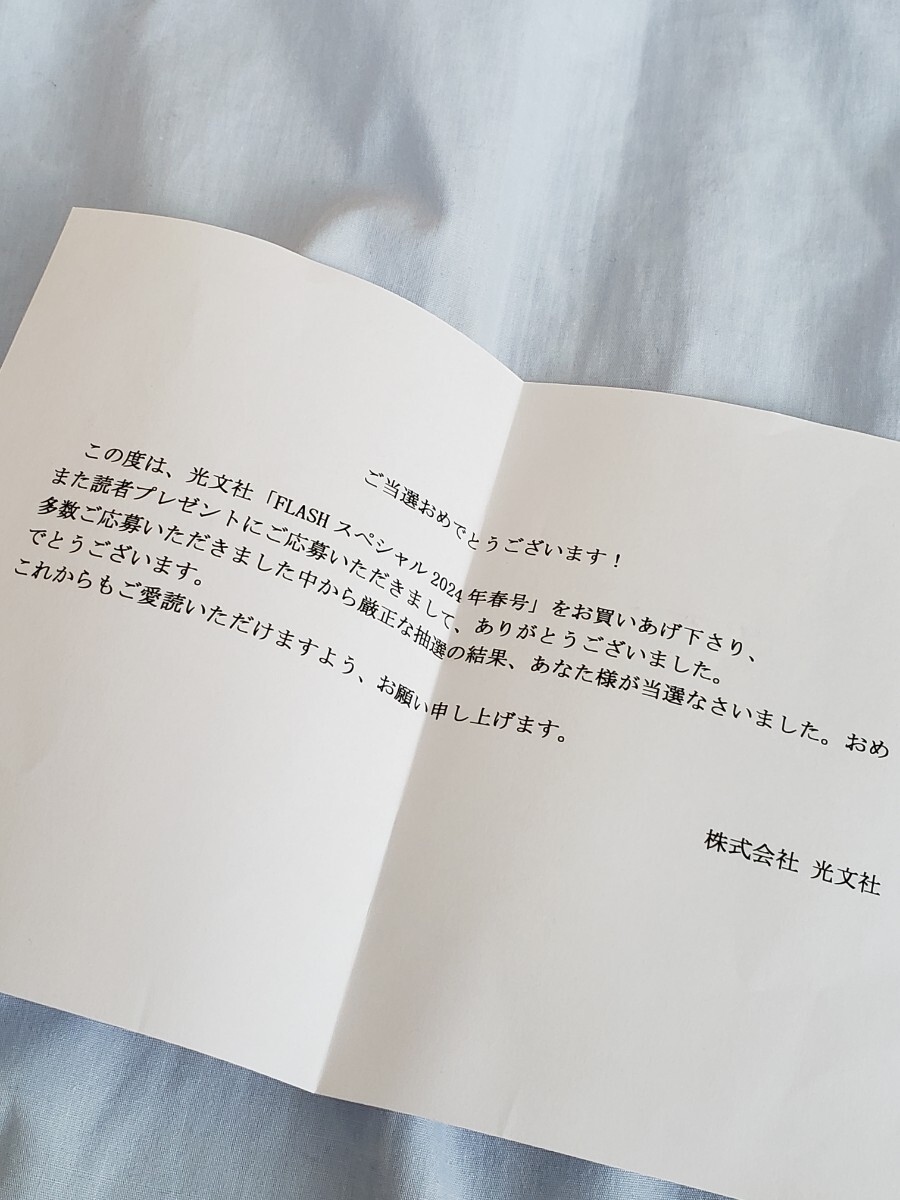 ご当選おめでとうございます！
この度は、光文社「FLASHスペシャル2024年春号」をお買いあげ下さり、
また読者プレゼントにご応募いただきまして、ありがとうございました。
多数ご応募いただきました中から厳正な抽選の結果、あなた様が当選なさいました。おめ
でとうございます。
これからもご愛読いただけますよう、お願い申し上げます。
株式会社 光文社